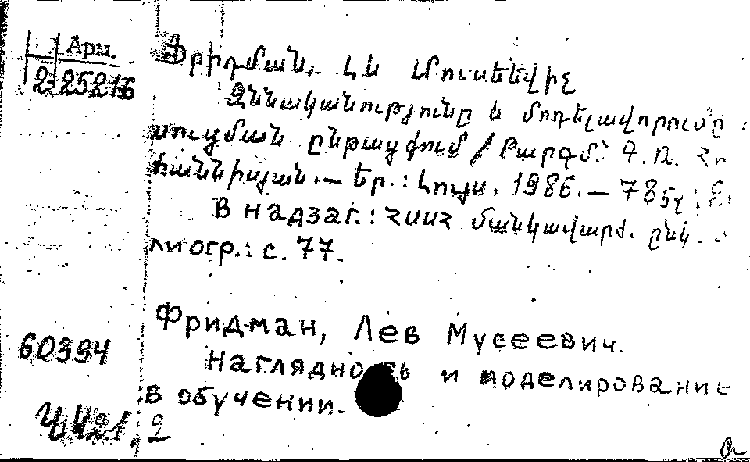 Арм.
2-25216
Ֆրիդման, Լև Մուսեևիչ
Զննականությունը և մոդելավորումը
ուսուցման ընթացքում / Թարգմ. Գ. Ռ. Հո
հաննիսյան. — Եր.: Լույս, 1986. — 78 էջ.
В надзаг.: ՀՍՍՀ մանկավարժ. ընկ.
лиогр.: с. 77.
Фридман, Лев Мусеевич.
60394
Наглядность и моделирование
в обучении.
Ч421.2